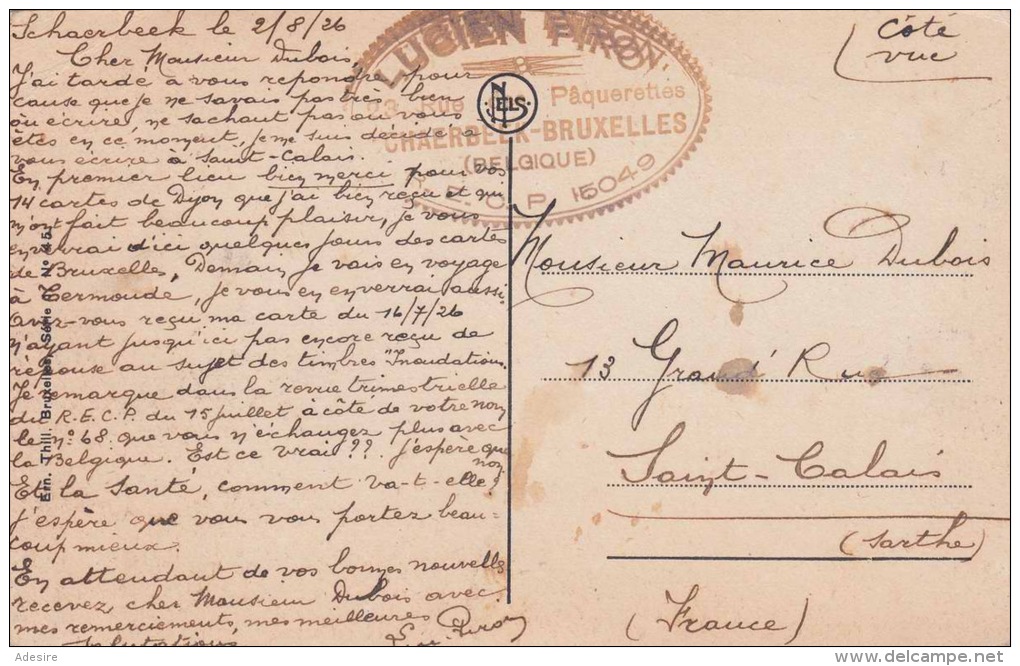 Schaerbeek le 2/8/26
Cher Monsieur Dubois,
J'ai tardé à vous repondre pour
cause que je ne savais pas très bien
où écrire, ne sachant pas où vous
êtes en ce moment, je me suis décidé à
vous écrire à Saint-Calais.
En premier lieu bien merci pour vos
14 cartes de Dijon que j'ai bien reçu et qui
m'ont fait beaucoup plaisir, je vous
enverrai d'ici quelques jours des cartes
de Bruxelles, Demain je vais en voyage
à Termonde, je vous en enverrai aussi.
Avez-vous reçu ma carte du 16/7/26
n'ayant jusqu'ici pas encore reçu de
réponse au sujet des timbres "Inondations
Je remarque dans la revue trimestrielle
du R.E.C.P. du 15 juillet à côte de votre nom
le nº 68 que vous n'échangez plus avec
la Belgique. Est ce vrai?? J'espère que
non
Et la Santé, comment va-t-elle?
j'espère que vous vous portez beau-
coup mieux.
En attendant de vos bonnes nouvelles
recevez, cher Monsieur Dubois avec
mes remerciements, mes meilleures
Salutations,
Piron
LUCIEN PIRON
Rue Pâquerettes
SCHAERBEEK-BRUXELLES
(BELGIQUE)
C. P. 15049
NELS
Ern. Thill, Bruxelles, Série
Côté
vue
Monsieur Maurice Dubois
13 Grand' Rue
Saint-Calais
(Sarthe)
(France)
Adesire
delcampe.net